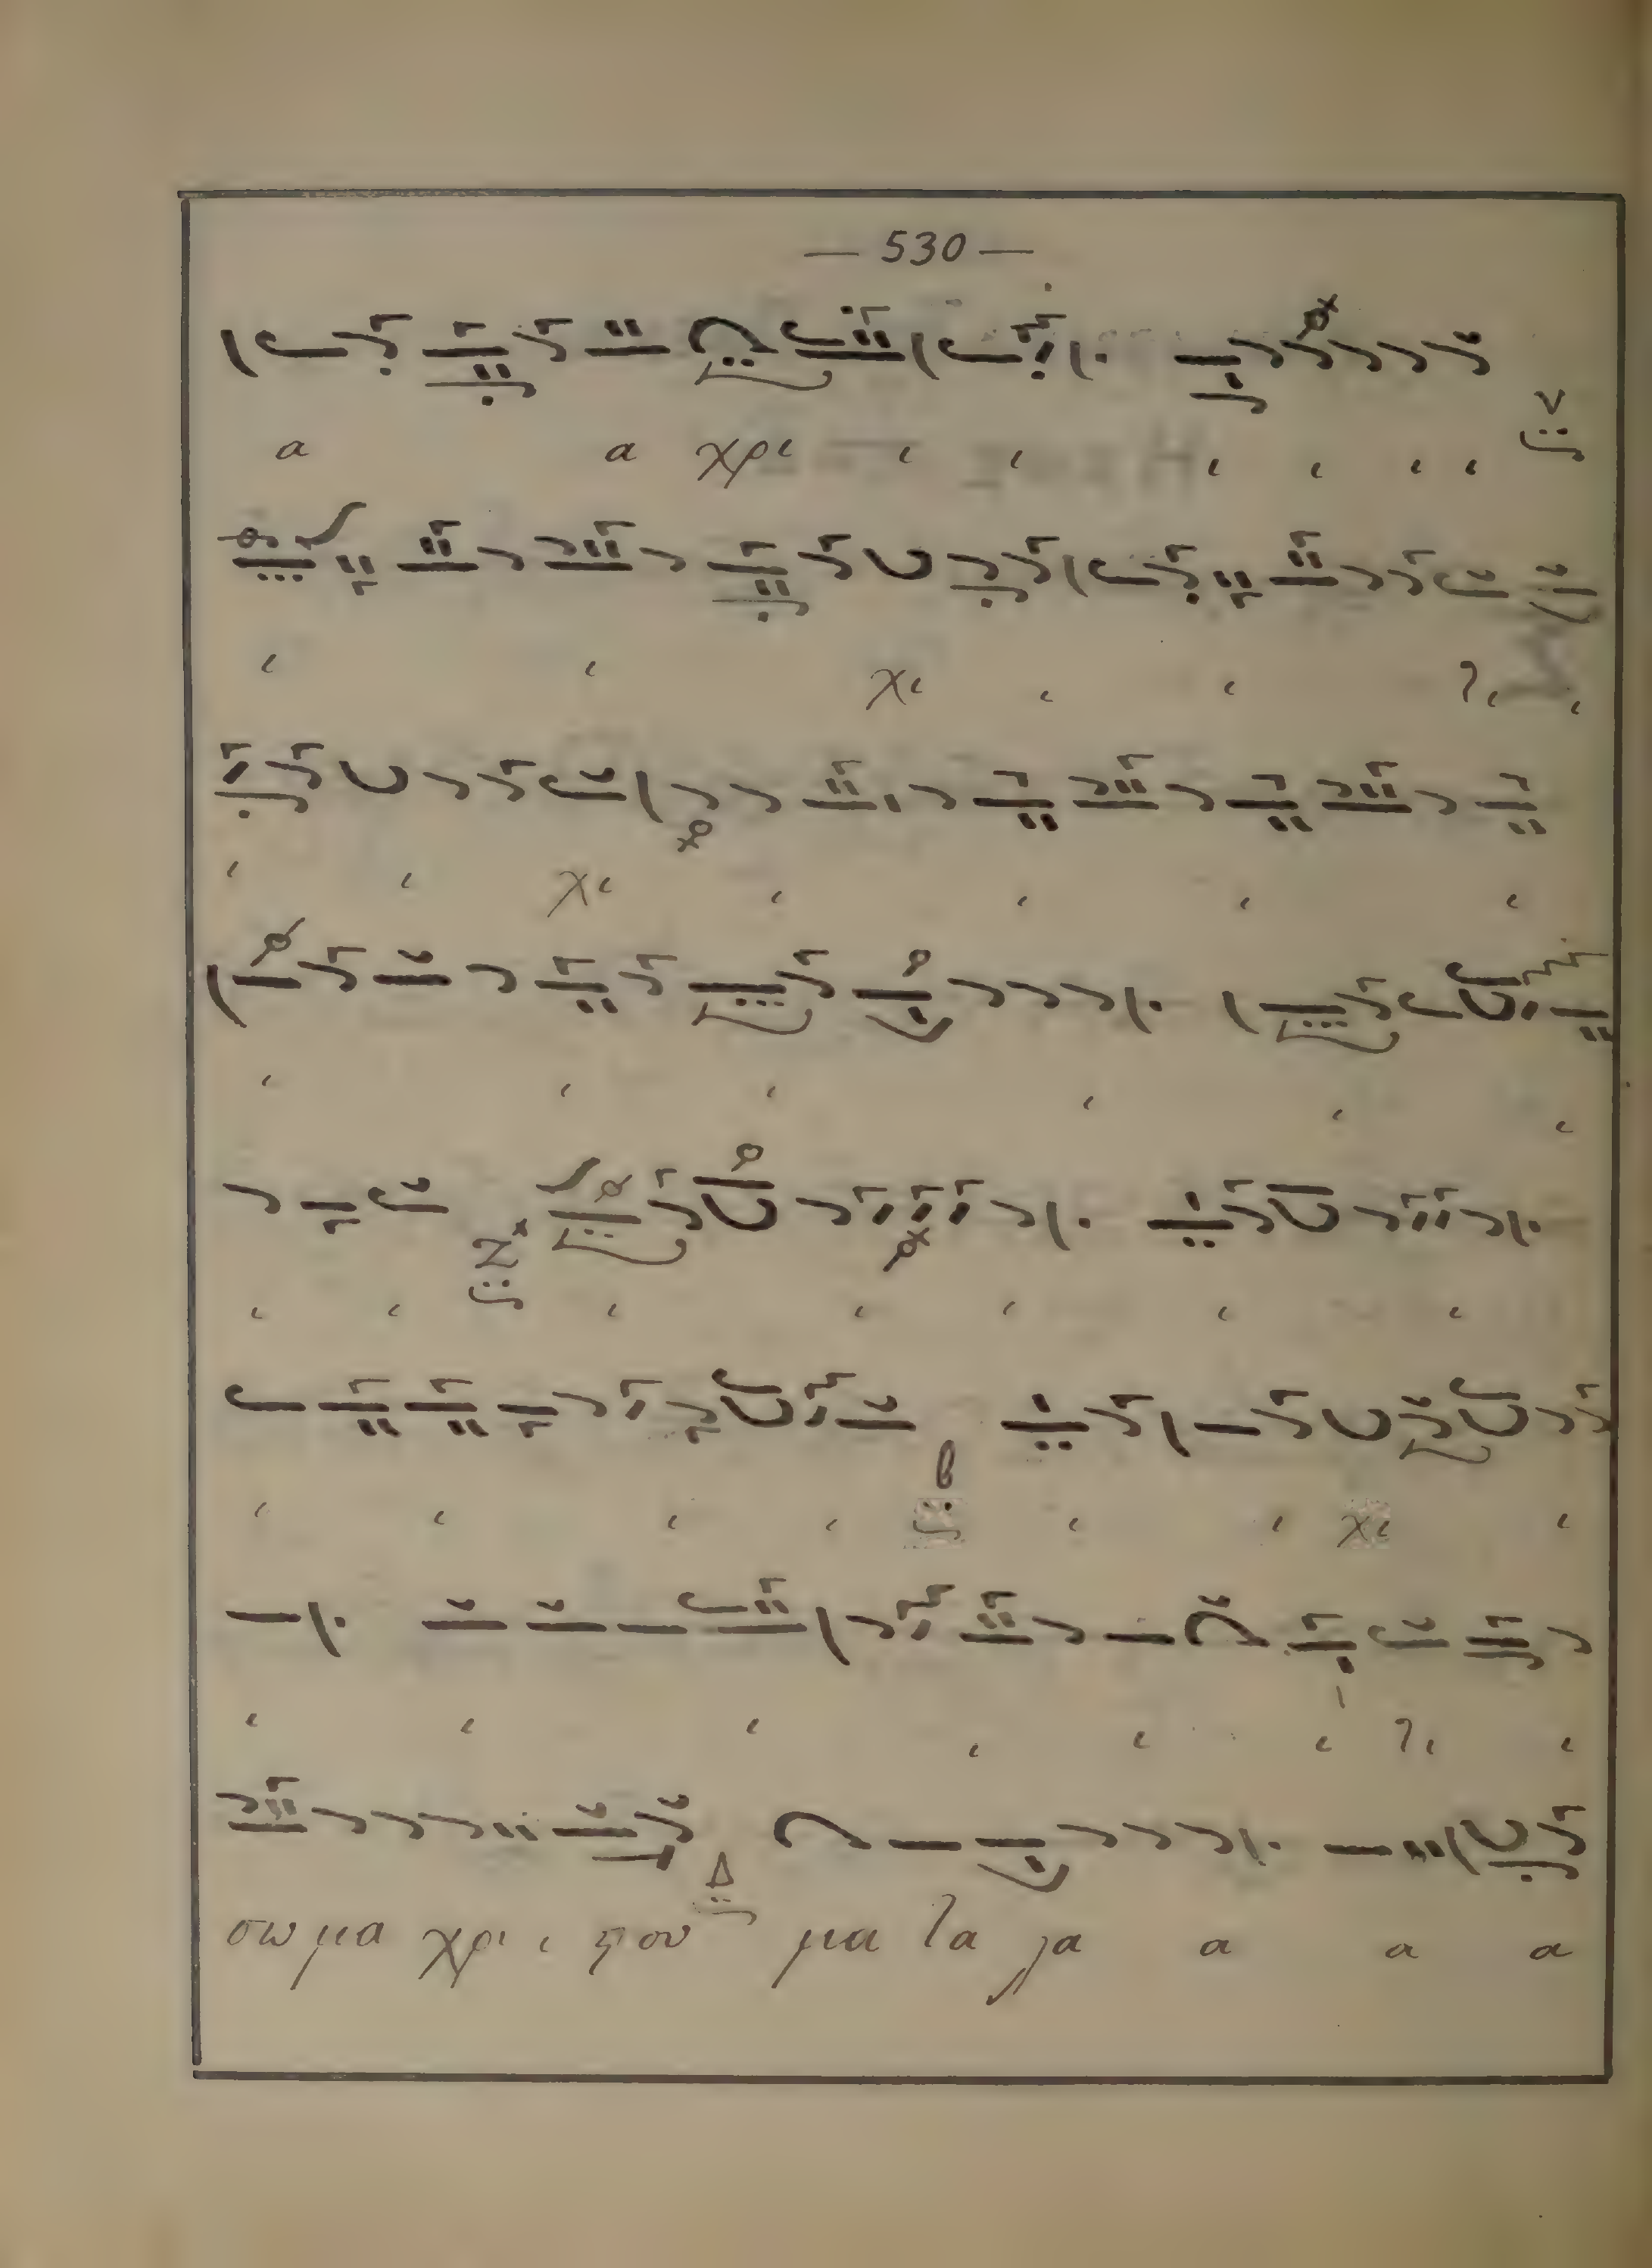 — 530 —
α α χρι ι ι ι ι ι ι
ι ι χι ι ι τι ι
ι ι χι ι ι ι ι
ι ι ι ι ι ι
ι ι ι ι ι ι ι
ι ι ι ι ι ι χι ι
ι ι ι ι ι ι τι ι
σω μα χρι ι ϛου μα τα λα α α α